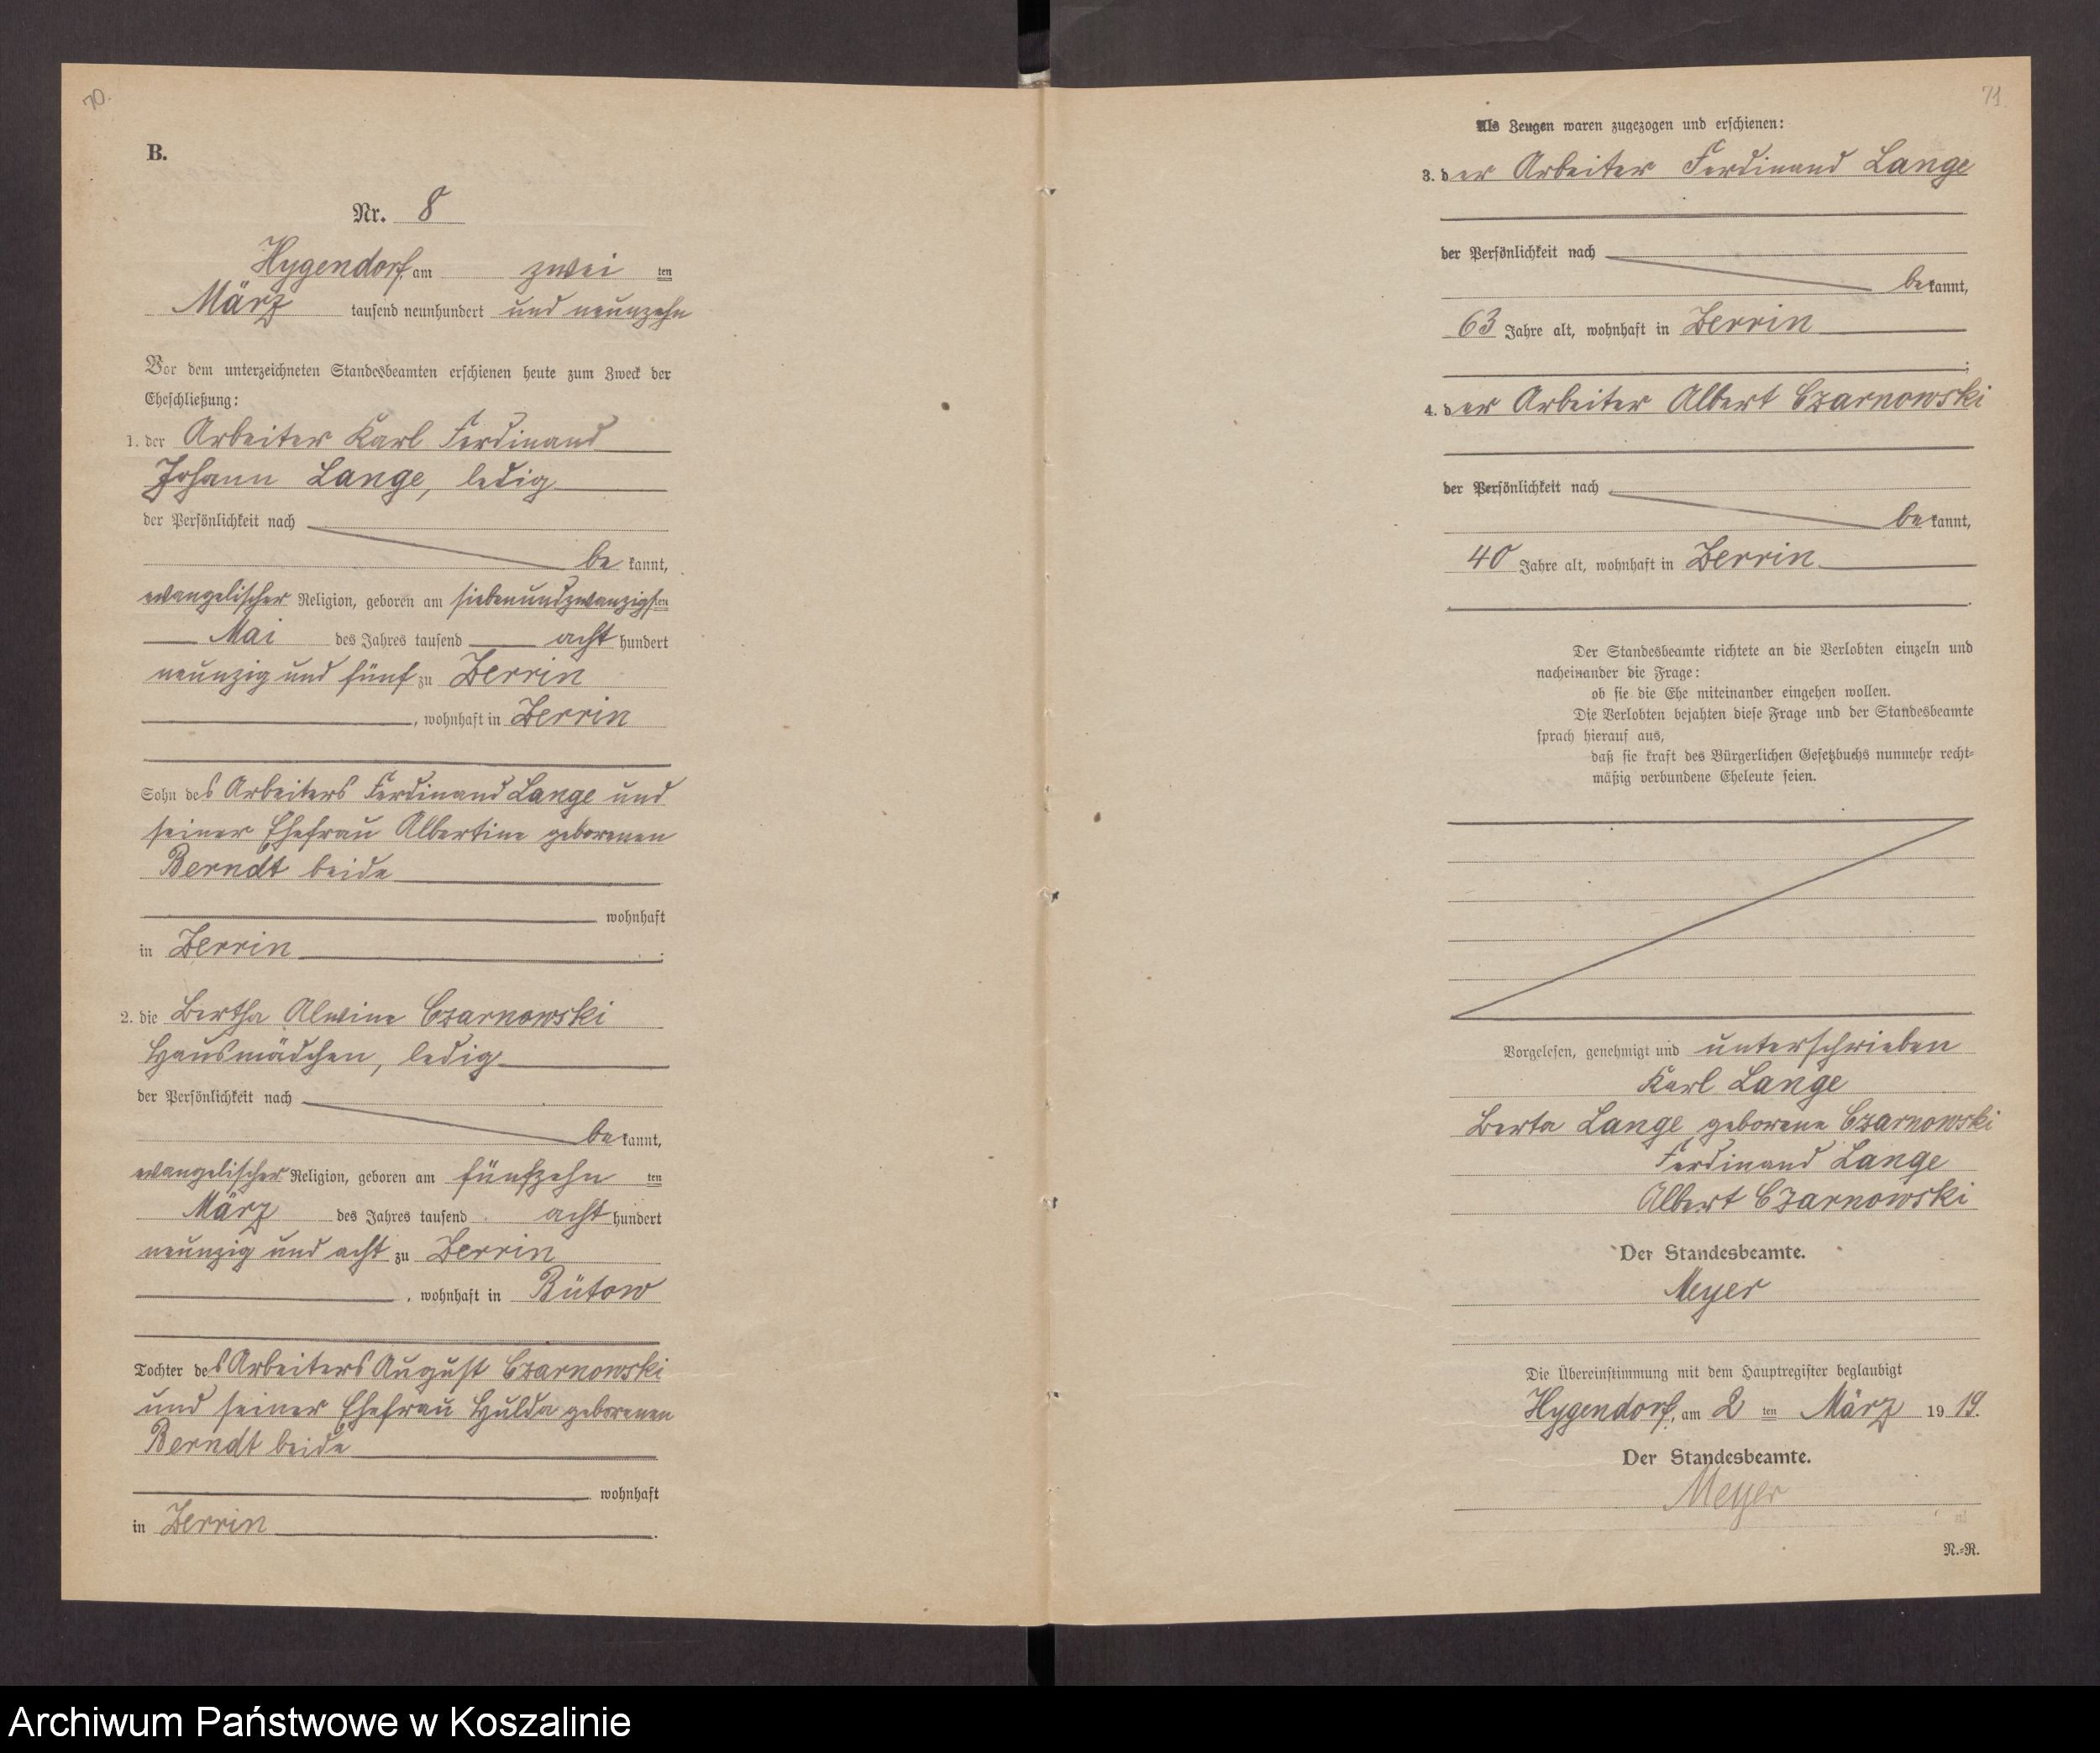 70.
B.
Nr. 8
Hygendorf, am zwei ten
März tausend neunhundert und neunzehn
Vor dem unterzeichneten Standesbeamten erschienen heute zum Zweck der
Eheschließung:
1. der Arbeiter Karl Ferdinand
Johann Lange, ledig
der Persönlichkeit nach
be kannt,
evangelischer Religion, geboren am siebenundzwanzigsten
Mai des Jahres tausend acht hundert
neunzig und fünf zu Zerrin
, wohnhaft in Zerrin
Sohn des Arbeiters Ferdinand Lange und
seiner Ehefrau Albertine geborenen
Berndt beide
wohnhaft
in Zerrin .
2. die Bertha Alwine Czarnowski
Hausmädchen, ledig
der Persönlichkeit nach
be kannt,
evangelischer Religion, geboren am fünfzehn ten
März des Jahres tausend acht hundert
neunzig und acht zu Zerrin
, wohnhaft in Bütow
Tochter des Arbeiters August Czarnowski
und seiner Ehefrau Hulda geborenen
Berndt beide
wohnhaft
in Zerrin .
71
Als Zeugen waren zugezogen und erschienen:
3. der Arbeiter Ferdinand Lange
der Persönlichkeit nach
be kannt,
63 Jahre alt, wohnhaft in Zerrin
;
4. der Arbeiter Albert Czarnowski
der Persönlichkeit nach
be kannt,
40 Jahre alt, wohnhaft in Zerrin
.
Der Standesbeamte richtete an die Verlobten einzeln und
nacheinander die Frage:
ob sie die Ehe miteinander eingehen wollen.
Die Verlobten bejahten diese Frage und der Standesbeamte
sprach hierauf aus,
daß sie kraft des Bürgerlichen Gesetzbuchs nunmehr recht-
mäßig verbundene Eheleute seien.
Vorgelesen, genehmigt und unterschrieben
Karl Lange
Berta Lange geborene Czarnowski
Ferdinand Lange
Albert Czarnowski
Der Standesbeamte.
Meyer
Die Übereinstimmung mit dem Hauptregister beglaubigt
Hygendorf, am 2 ten März 19 19.
Der Standesbeamte.
Meyer
N.-R.
Archiwum Państwowe w Koszalinie